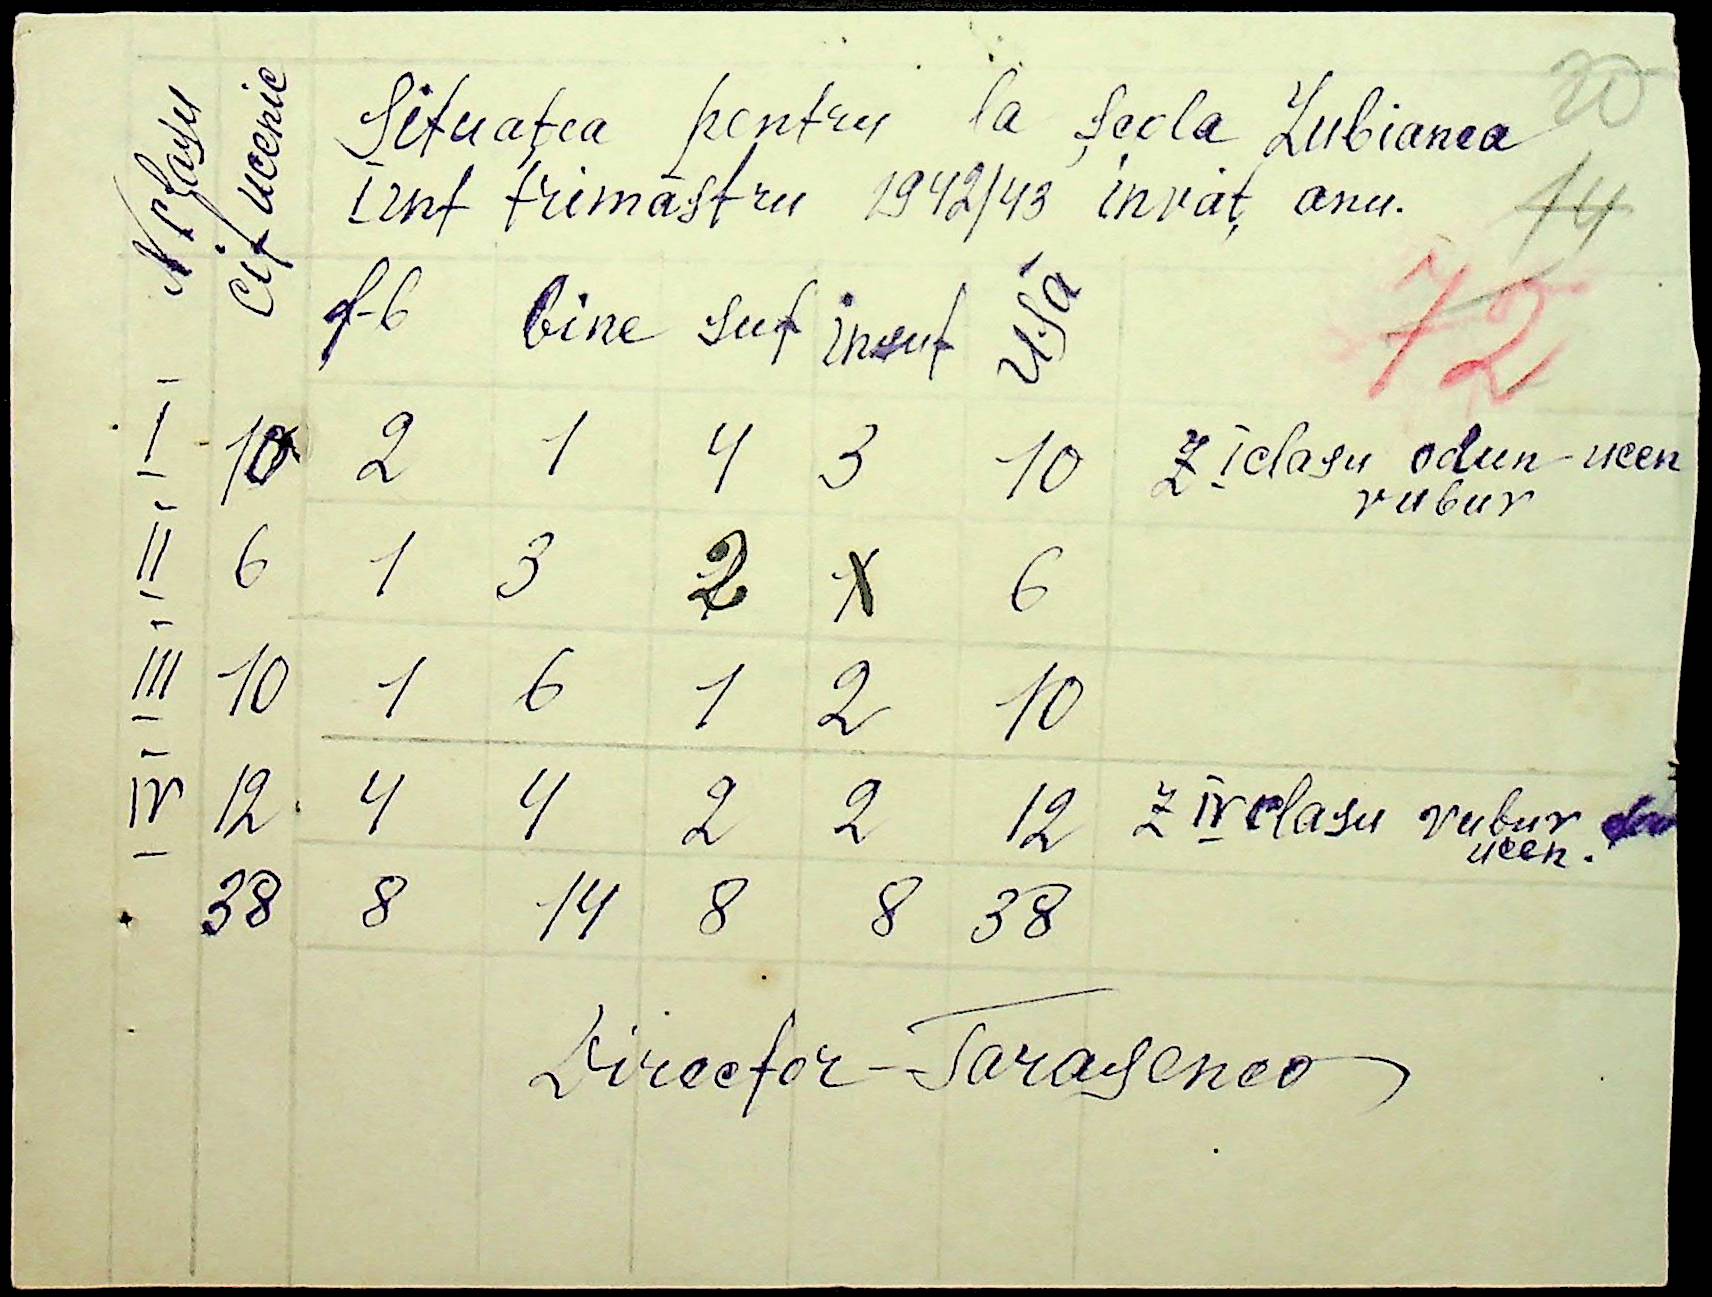 30
Situațea pentru la școla Lubianca
I înt trimăstru 1942/43 invăț anu.
14
72
Nr Clasu Cit ucenic f-b bine suf insuf Usă
I 10 2 1 4 3 10 Z I clasu odun ucen
vubur
II 6 1 3 2 X 6
III 10 1 6 1 2 10
IV 12 4 4 2 2 12 Z IV clasu vubur
ucen.
38 8 14 8 8 38
Director - Tarasenco